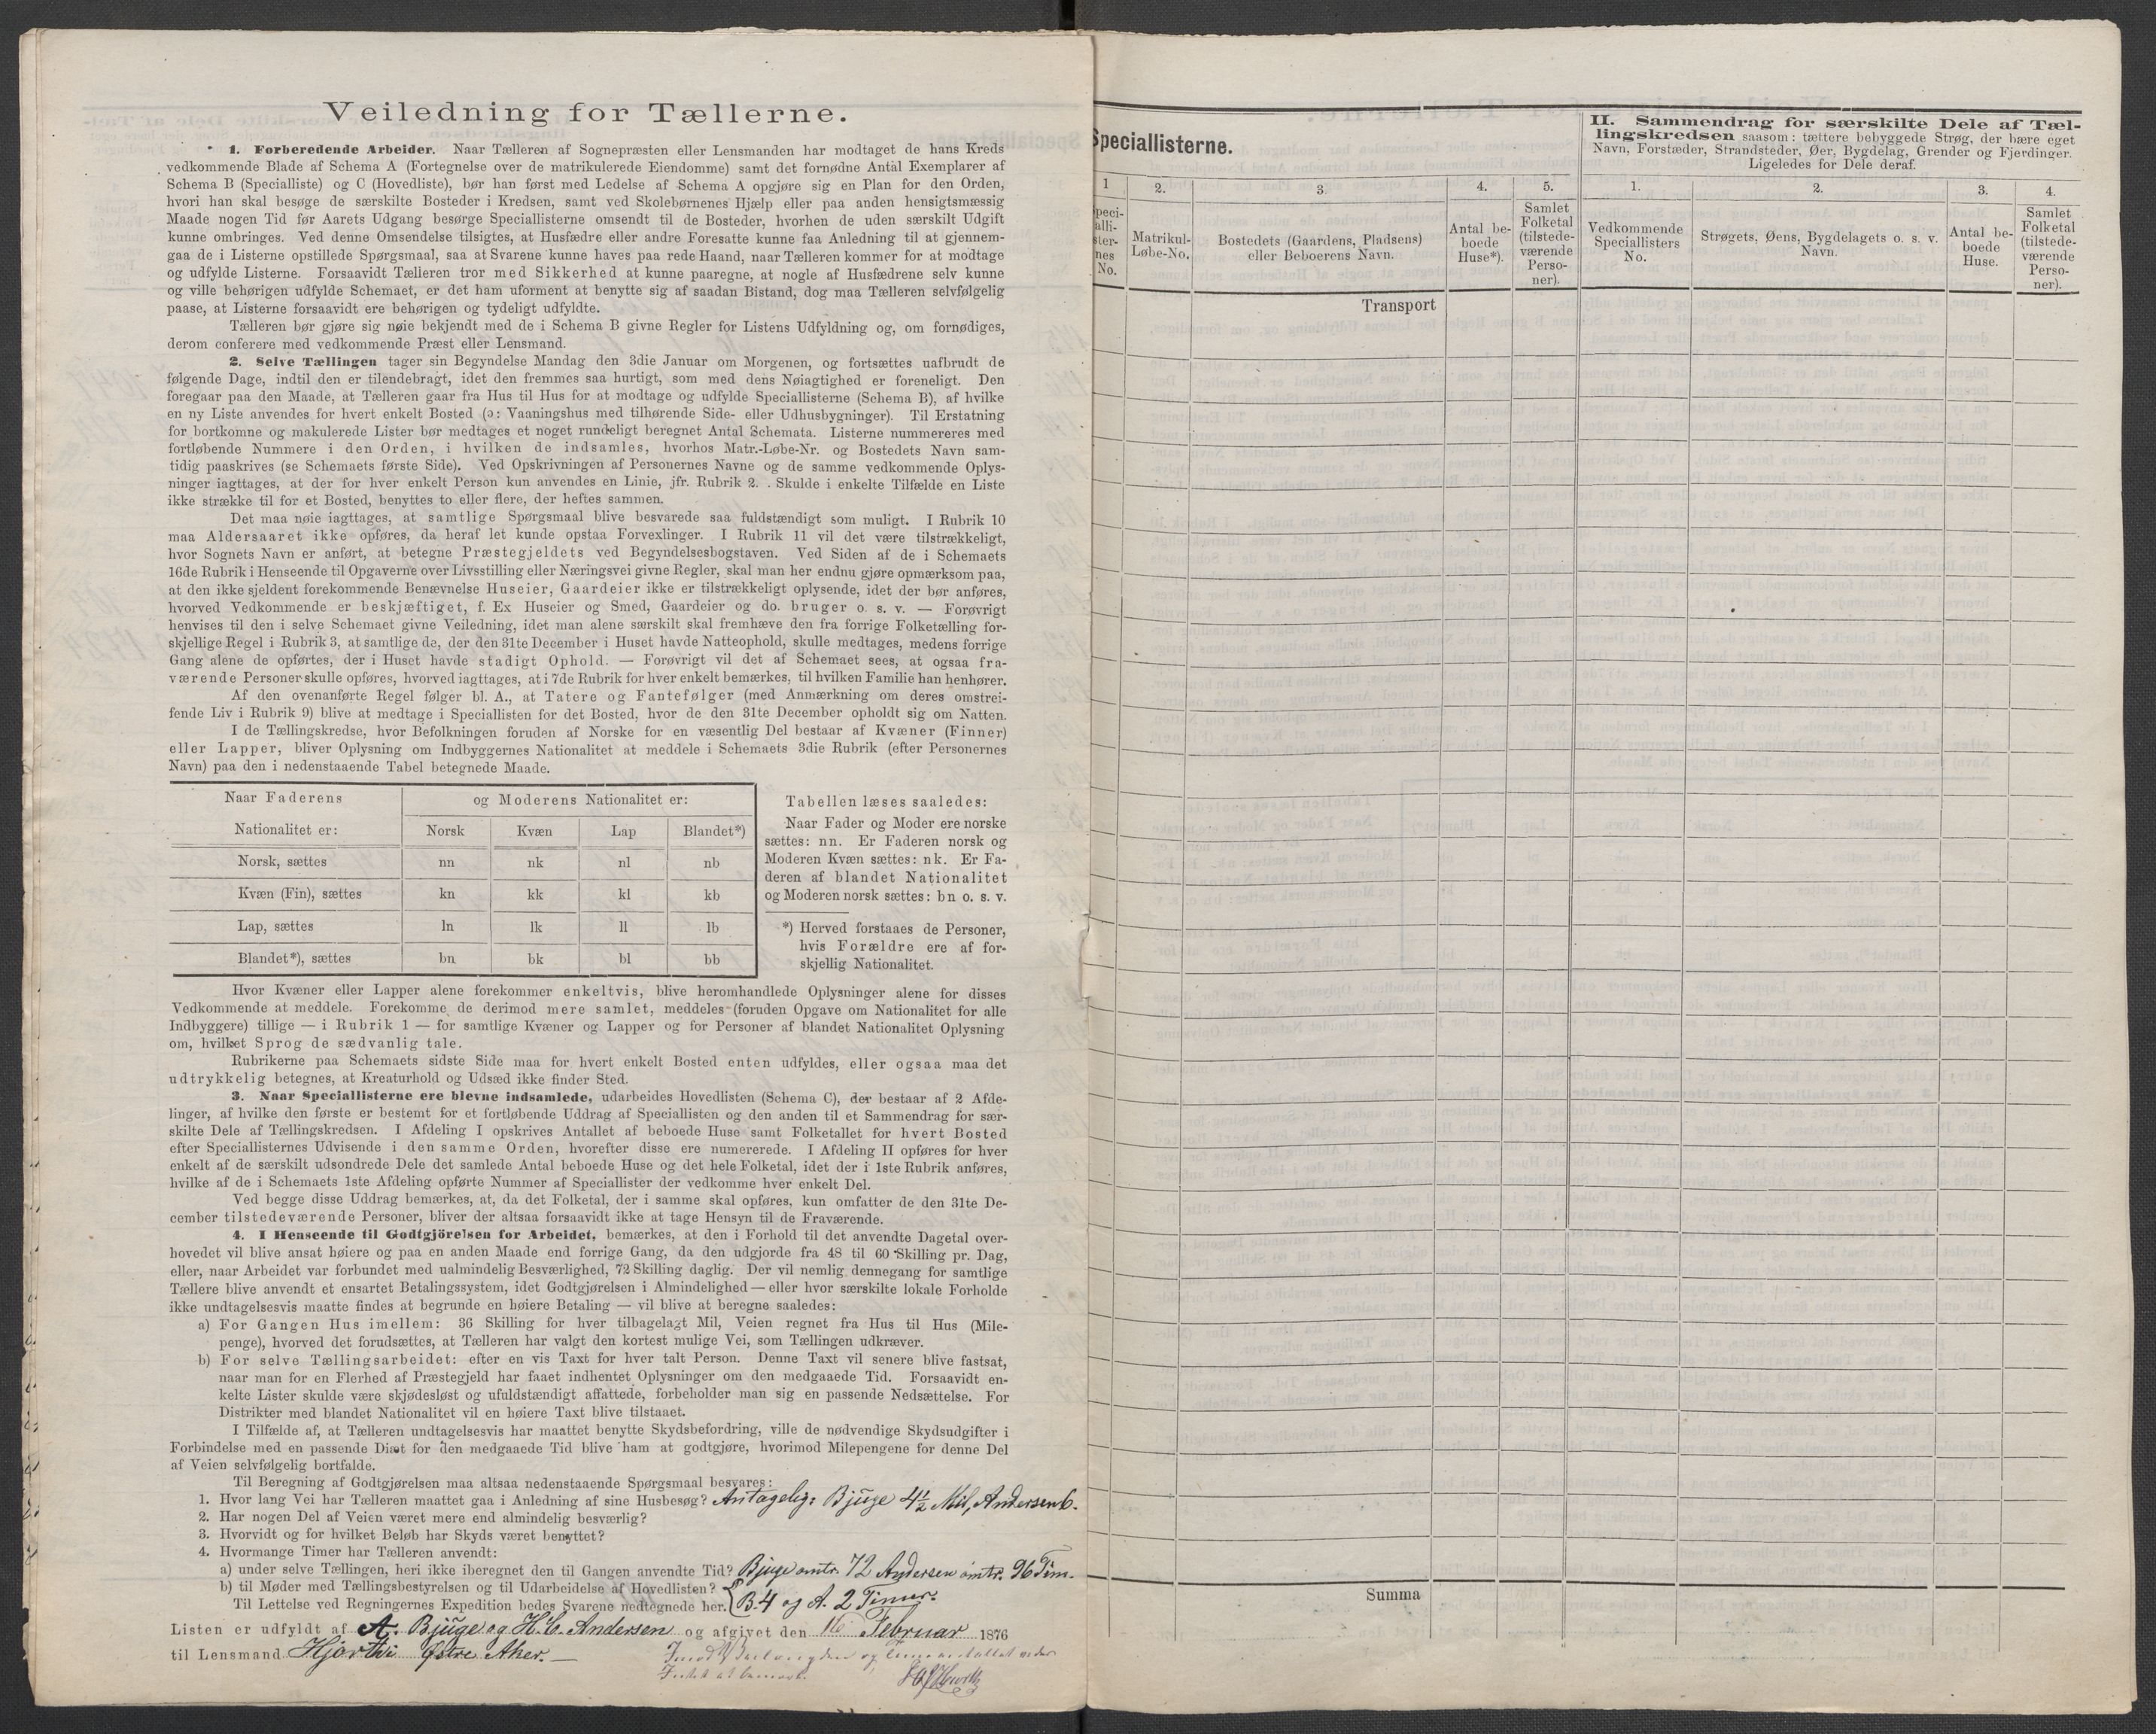 Veiledning for Tællerne.
1. Forberedende Arbeider. Naar Tælleren af Sognepræsten eller Lensmanden har modtaget de hans Kreds
vedkommende Blade af Schema A (Fortegnelse over de matrikulerede Eiendomme) samt det fornødne Antal Exemplarer af
Schema B (Specialliste) og C (Hovedliste), bør han først med Ledelse af Schema A opgjøre sig en Plan for den Orden,
hvori han skal besøge de særskilte Bosteder i Kredsen, samt ved Skolebørnenes Hjælp eller paa anden hensigtsmæssig
Maade nogen Tid før Aarets Udgang besørge Speciallisterne omsendt til de Bosteder, hvorhen de uden særskilt Udgift
kunne ombringes. Ved denne Omsendelse tilsigtes, at Husfædre eller andre Foresatte kunne faa Anledning til at gjennem-
gaa de i Listerne opstillede Spørgsmaal, saa at Svarene kunne haves paa rede Haand, naar Tælleren kommer for at modtage
og udfylde Listerne. Forsaavidt Tælleren tror med Sikkerhed at kunne paaregne, at nogle af Husfædrene selv kunne
og ville behørigen udfylde Schemaet, er det ham uforment at benytte sig af saadan Bistand, dog maa Tælleren selvfølgelig
paase, at Listerne forsaavidt ere behørigen og tydeligt udfyldte.
Tælleren bør gjøre sig nøie bekjendt med de i Schema B givne Regler for Listens Udfyldning og, om fornødiges,
derom conferere med vedkommende Præst eller Lensmand.
2. Selve Tællingen tager sin Begyndelse Mandag den 3die Januar om Morgenen, og fortsættes uafbrudt de
følgende Dage, indtil den er tilendebragt, idet den fremmes saa hurtigt, som med dens Nøiagtighed er foreneligt. Den
foregaar paa den Maade, at Tælleren gaar fra Hus til Hus for at modtage og udfylde Speciallisterne (Schema B), af hvilke
en ny Liste anvendes for hvert enkelt Bosted (ɔ: Vaaningshus med tilhørende Side- eller Udhusbygninger). Til Erstatning
for bortkomne og makulerede Lister bør medtages et noget rundeligt beregnet Antal Schemata. Listerne nummereres med
fortløbende Nummere i den Orden, i hvilken de indsamles, hvorhos Matr.-Løbe-Nr. og Bostedets Navn sam-
tidig paaskrives (se Schemaets første Side). Ved Opskrivningen af Personernes Navne og de samme vedkommende Oplys-
ninger iagttages, at der for hver enkelt Person kun anvendes en Linie, jfr. Rubrik 2. Skulde i enkelte Tilfælde en Liste
ikke strække til for et Bosted, benyttes to eller flere, der heftes sammen.
Det maa nøie iagttages, at samtlige Spørgsmaal blive besvarede saa fuldstændigt som muligt. I Rubrik 10
maa Aldersaaret ikke opføres, da heraf let kunde opstaa Forvexlinger. I Rubrik 11 vil det være tilstrækkeligt,
hvor Sognets Navn er anført, at betegne Præstegjeldets ved Begyndelsesbogstaven. Ved Siden af de i Schemaets
16de Rubrik i Henseende til Opgaverne over Livsstilling eller Næringsvei givne Regler, skal man her endnu gjøre opmærksom paa,
at den ikke sjeldent forekommende Benævnelse Huseier, Gaardeier ikke er tilstrækkeligt oplysende, idet der bør anføres,
hvorved Vedkommende er beskjæftiget, f. Ex Huseier og Smed, Gaardeier og do. bruger o. s. v. — Forøvrigt
henvises til den i selve Schemaet givne Veiledning, idet man alene særskilt skal fremhæve den fra forrige Folketælling for-
skjellige Regel i Rubrik 3, at samtlige de, der den 31te December i Huset havde Natteophold, skulle medtages, medens forrige
Gang alene de opførtes, der i Huset havde stadigt Ophold. — Forøvrigt vil det af Schemaet sees, at ogsaa fra-
værende Personer skulle opføres, hvorved iagttages, at i 7de Rubrik for hver enkelt bemærkes, til hvilken Familie han henhører.
Af den ovenanførte Regel følger bl. A., at Tatere og Fantefølger (med Anmærkning om deres omstrei-
fende Liv i Rubrik 9) blive at medtage i Speciallisten for det Bosted, hvor de den 31te December opholdt sig om Natten.
I de Tællingskredse, hvor Befolkningen foruden af Norske for en væsentlig Del bestaar af Kvæner (Finner)
eller Lapper, bliver Oplysning om Indbyggernes Nationalitet at meddele i Schemaets 3die Rubrik (efter Personernes
Navn) paa den i nedenstaaende Tabel betegnede Maade.
Naar Faderens og Moderens Nationalitet er:
Nationalitet er: Norsk Kvæn Lap Blandet*)
Norsk, sættes nn nk nl nb
Kvæn (Fin), sættes kn kk kl kb
Lap, sættes ln lk ll lb
Blandet*), sættes bn bk bl bb
Tabellen læses saaledes:
Naar Fader og Moder ere norske
sættes: nn. Er Faderen norsk og
Moderen Kvæn sættes: nk. Er Fa-
deren af blandet Nationalitet
og Moderen norsk sættes: bn o. s. v.
*) Herved forstaaes de Personer,
hvis Forældre ere af for-
skjellig Nationalitet.
Hvor Kvæner eller Lapper alene forekommer enkeltvis, blive heromhandlede Oplysninger alene for disses
Vedkommende at meddele. Forekomme de derimod mere samlet, meddeles (foruden Opgave om Nationalitet for alle
Indbyggere) tillige — i Rubrik 1 — for samtlige Kvæner og Lapper og for Personer af blandet Nationalitet Oplysning
om, hvilket Sprog de sædvanlig tale.
Rubrikerne paa Schemaets sidste Side maa for hvert enkelt Bosted enten udfyldes, eller ogsaa maa det
udtrykkelig betegnes, at Kreaturhold og Udsæd ikke finder Sted.
3. Naar Speciallisterne ere blevne indsamlede, udarbeides Hovedlisten (Schema C), der bestaar af 2 Afde-
linger, af hvilke den første er bestemt for et fortløbende Uddrag af Speciallisten og den anden til et Sammendrag for sær-
skilte Dele af Tællingskredsen. I Afdeling I opskrives Antallet af beboede Huse samt Folketallet for hvert Bosted
efter Speciallisternes Udvisende i den samme Orden, hvorefter disse ere numererede. I Afdeling II opføres for hver
enkelt af de særskilt udsondrede Dele det samlede Antal beboede Huse og det hele Folketal, idet der i 1ste Rubrik anføres,
hvilke af de i Schemaets 1ste Afdeling opførte Nummer af Speciallister der vedkomme hver enkelt Del.
Ved begge disse Uddrag bemærkes, at, da det Folketal, der i samme skal opføres, kun omfatter de den 31te De-
cember tilstedeværende Personer, bliver der altsaa forsaavidt ikke at tage Hensyn til de Fraværende.
4. I Henseende til Godtgjörelsen for Arbeidet, bemærkes, at den i Forhold til det anvendte Dagetal over-
hovedet vil blive ansat høiere og paa en anden Maade end forrige Gang, da den udgjorde fra 48 til 60 Skilling pr. Dag,
eller, naar Arbeidet var forbundet med ualmindelig Besværlighed, 72 Skilling daglig. Der vil nemlig dennegang for samtlige
Tællere blive anvendt et ensartet Betalingssystem, idet Godtgjørelsen i Almindelighed — eller hvor særskilte lokale Forholde
ikke undtagelsesvis maatte findes at begrunde en høiere Betaling — vil blive at beregne saaledes:
a) For Gangen Hus imellem: 36 Skilling for hver tilbagelagt Mil, Veien regnet fra Hus til Hus (Mile-
penge), hvorved det forudsættes, at Tælleren har valgt den kortest mulige Vei, som Tællingen udkræver.
b) For selve Tællingsarbeidet: efter en vis Taxt for hver talt Person. Denne Taxt vil senere blive fastsat,
naar man for en Flerhed af Præstegjeld har faaet indhentet Oplysninger om den medgaaede Tid. Forsaavidt en-
kelte Lister skulde være skjødesløst og ufuldstændigt affattede, forbeholder man sig en passende Nedsættelse. For
Distrikter med blandet Nationalitet vil en høiere Taxt blive tilstaaet.
I Tilfælde af, at Tælleren undtagelsesvis har maattet benytte Skydsbefordring, ville de nødvendige Skydsudgifter i
Forbindelse med en passende Diæt for den medgaaede Tid blive ham at godtgjøre, hvorimod Milepengene for denne Del
af Veien selvfølgelig bortfalde.
Til Beregning af Godtgjørelsen maa altsaa nedenstaaende Spørgsmaal besvares:
1. Hvor lang Vei har Tælleren maattet gaa i Anledning af sine Husbesøg? Antagelig: Bjuge 4½ Mil, Andersen 6.
2. Har nogen Del af Veien været mere end almindelig besværlig?
3. Hvorvidt og for hvilket Beløb har Skyds været benyttet?
4. Hvormange Timer har Tælleren anvendt:
a) under selve Tællingen, heri ikke iberegnet den til Gangen anvendte Tid? Bjuge omtr. 72 Andersen omtr. 96 Tim.
b) til Møder med Tællingsbestyrelsen og til Udarbeidelse af Hovedlisten?
Til Lettelse ved Regningernes Expedition bedes Svarene nedtegnede her. B. 4 og A. 2 Timer.
Listen er udfyldt af A. Bjuge og H. C. Andersen og afgivet den 16 Februar 1876
til Lensmand Hjorth i Østre Aker. —
Speciallisterne.
1 2. 3. 4. 5.
Speci-
alli-
ster-
nes
No.
Matrikul-
Løbe-No.
Bostedets (Gaardens, Pladsens)
eller Beboerens Navn.
Antal be-
boede
Huse*).
Samlet
Folketal
(tilstede-
værende
Perso-
ner).
Transport
Summa
II. Sammendrag for særskilte Dele af Tæl-
lingskredsen saasom: tættere bebyggede Strøg, der bære eget
Navn, Forstæder, Strandsteder, Øer, Bygdelag, Grender og Fjerdinger.
Ligeledes for Dele deraf.
1. 2. 3. 4.
Vedkommende
Speciallisters
No.
Strøgets, Øens, Bygdelagets o. s. v.
Navn.
Antal be-
boede
Huse.
Samlet
Folketal
(tilstede-
værende
Perso-
ner).